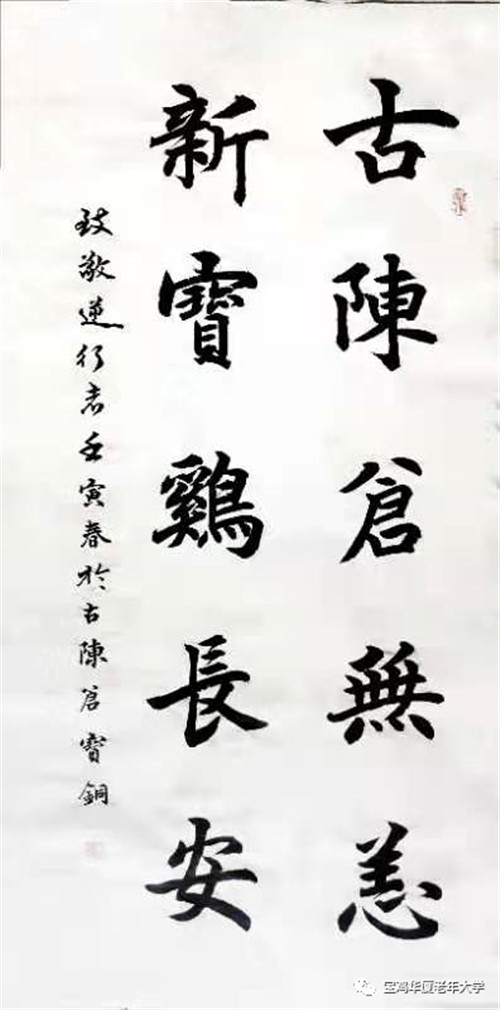 古陳倉無恙
新寶鷄長安
致敬逆行者壬寅春於古陳倉寶銅
宝鸡华厦老年大学